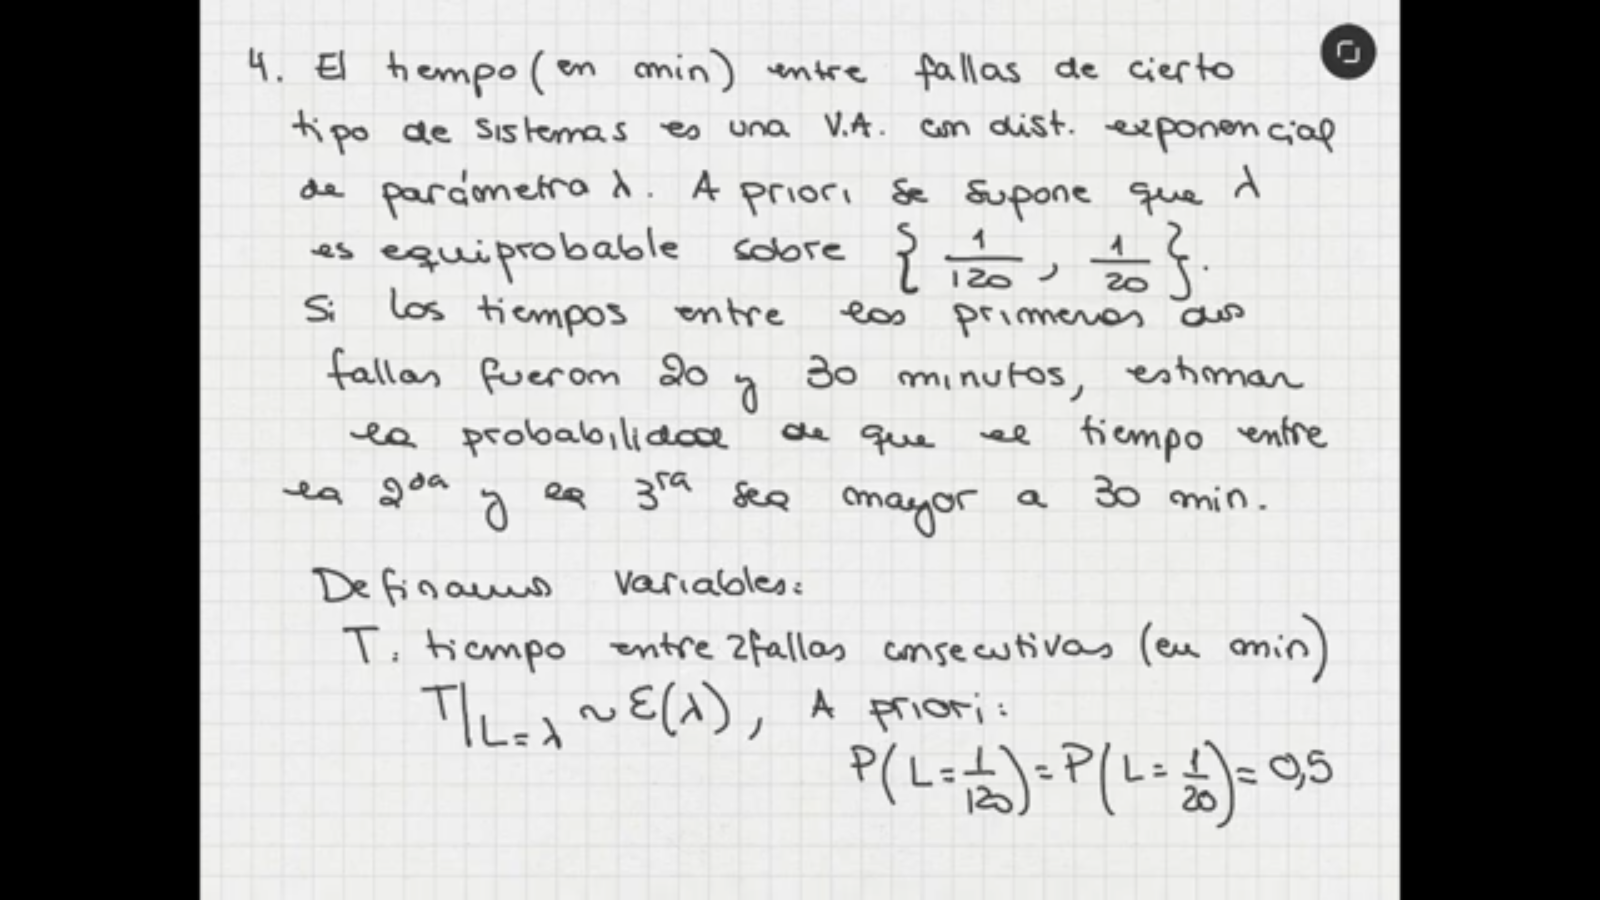 4. El tiempo (en min) entre fallas de cierto
tipo de sistemas es una V.A. con dist. exponencial
de parámetra λ. A priori se supone que λ
es equiprobable sobre { 1/120 , 1/20 }.
Si los tiempos entre las primeras dos
fallas fueron 20 y 30 minutos, estimar
la probabilidad de que el tiempo entre
la 2da y la 3ra sea mayor a 30 min.
Definamos variables:
T: tiempo entre 2 fallas consecutivas (en min)
T|L=λ ~ E(λ), A priori:
P(L=1/120) = P(L=1/20) = 0,5